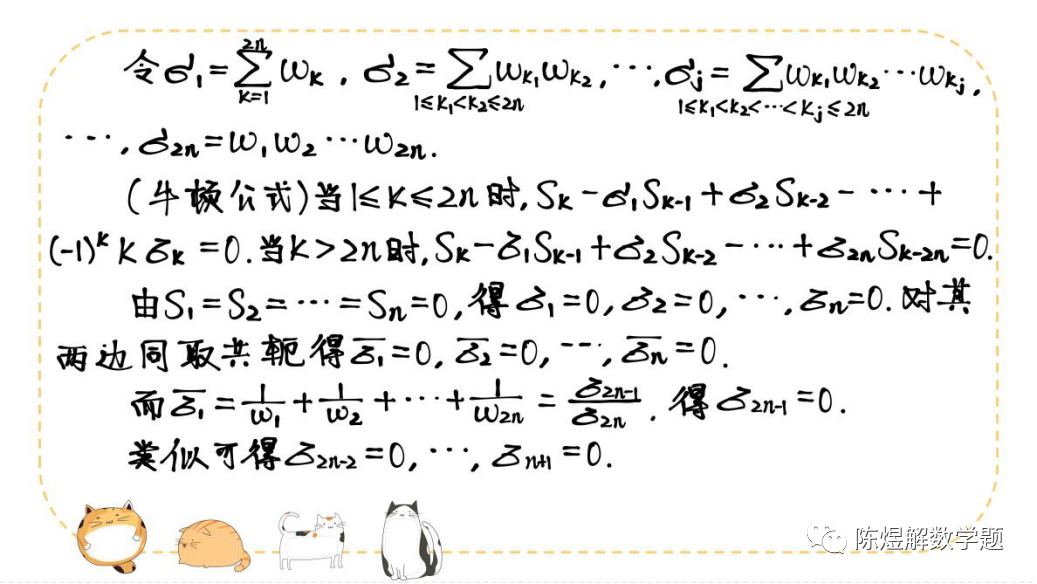 令σ₁=∑_{k=1}^{2n} ω_k，σ₂=∑_{1≤k₁<k₂≤2n} ω_{k₁}ω_{k₂}，⋯，σ_j=∑_{1≤k₁<k₂<⋯<k_j≤2n} ω_{k₁}ω_{k₂}⋯ω_{k_j}，
⋯，σ_{2n}=ω₁ω₂⋯ω_{2n}.
(牛顿公式)当1≤k≤2n时，S_k-σ₁S_{k-1}+σ₂S_{k-2}-⋯+
(-1)^k kσ_k=0.当k>2n时，S_k-σ₁S_{k-1}+σ₂S_{k-2}-⋯+σ_{2n}S_{k-2n}=0.
由S₁=S₂=⋯=S_n=0，得σ₁=0，σ₂=0，⋯，σ_n=0.对其
两边同取共轭得\overline{σ₁}=0，\overline{σ₂}=0，⋯，\overline{σ_n}=0.
而\overline{σ₁}=\frac{1}{ω₁}+\frac{1}{ω₂}+⋯+\frac{1}{ω_{2n}}=\frac{σ_{2n-1}}{σ_{2n}}，得σ_{2n-1}=0.
类似可得σ_{2n-2}=0，⋯，σ_{n+1}=0.
陈煜解数学题